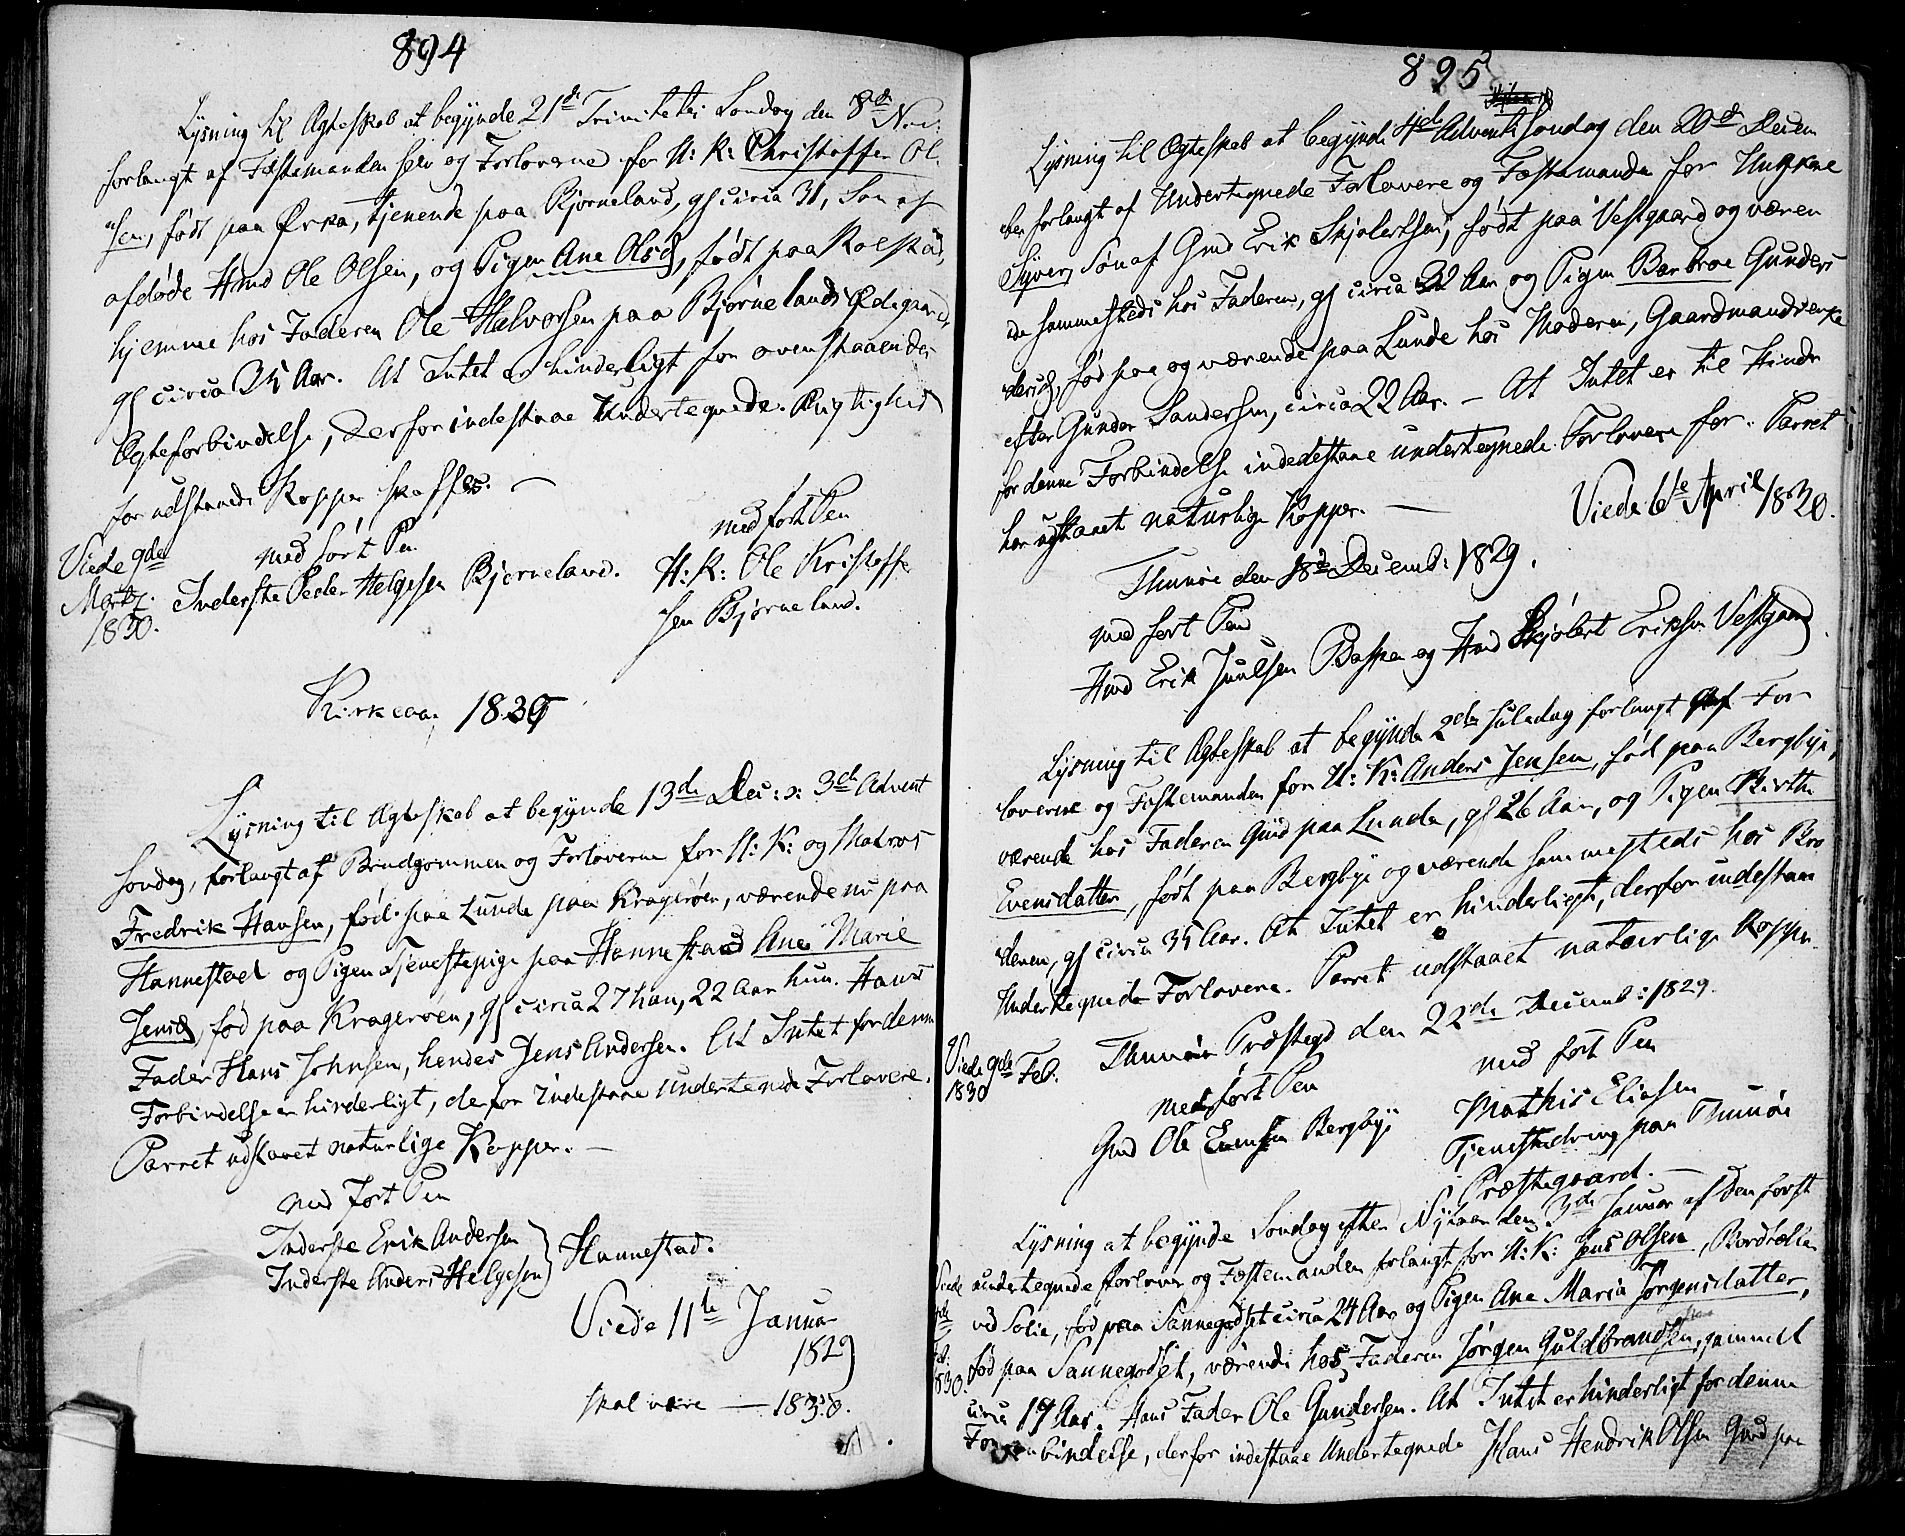 894
Lysning til Ægteskab at begynde 21de Trinitatis Søndag den 8de Nov:
forlangt af Fæstemanden selv og Forloverne for U: K: Christoffer Ol-
sen, født paa Ørka, tjenende paa Bjørneland, gl circa 31, Søn af
afdøde Hmd Ole Olsen, og Pigen Ane Olsd, født paa Rolstad,
hjemme hos Faderen Ole Halvorsen paa Bjørnelands Ødegaard,
gl circa 35 Aar. At Intet er hinderligt for ovenstaaendes
Ægteforbindelse, derfor indestaae Undertegnede. Rigtighed
for udstandne Kopper skaffes. —
Viede 9de
Martz.
1830.
med ført Pen
Inderste Peder Helgesen Bjørneland.
med ført Pen
U: K: Ole Kristoffer
sen Bjørneland.
Kirkeaar 1830
Lysning til Ægteskab at begynde 13de Dec: ɔ: 3de Advent
Søndag, forlangt af Brudgommen og Forloverne for U: K: og Matros
Fredrik Hansen, fød paa Lunde paa Kragerøen, værende nu paa
Hannestad og Pigen Tjenestepige paa Hannestad Ane Marie
Jensd, fød paa Kragerøen, gl circa 27 han, 22 Aar hun. Hans
Fader Hans Johnsen, hendes Jens Andersen. At Intet for denne
Forbindelse er hinderligt, derfor indestaae undertenede Forlovere.
Parret udstaaet naturlige Kopper. —
med ført Pen
Inderste Erik Andersen
Inderste Anders Helgesen
Hannestad.
Viede 11te Januar
1829
skal være — 1830.
895
Lysning til Ægteskab at begynde 4de Advents Søndag den 20de Decem
ber forlangt af Undertegnede Forlovere og Fæstemanden for Ungkarl
Syver, Søn af Gmd Erik Skjølertsen, født paa Vestgaard og væren
de sammesteds hos Faderen, gl circa 22 Aar og Pigen Barbroe Gunders
datter, fød paa og værende paa Lunde hos Moderen, Gaardmandsenke
efter Gunder Sandersen, circa 22 Aar. — At Intet er til Hinder
for denne Forbindelse indestaae undertegnede Forlovere for. Parret
har udstaaet naturlige Kopper. —
Viede 6te April 1830.
Thunøe den 18de Decemb: 1829.
med ført Pen
Hmd Erik Juulsen Basken og Hmd Skjølert Eriksen Vestgaard
Lysning til Ægteskab at begynde 2den Juledag forlangt af For
loverne og Fæstemanden for U: K: Anders Jensen, fød paa Bergbye,
værende hos Faderen Gmd paa Lunde, gl 26 Aar, og Pigen Birthe
Evensdatter, født paa Bergbye og værende sammesteds hos Bro
deren, gl circa 35 Aar. At Intet er hinderligt, derfor indestaae
Undertegnede Forlovere. Parret udstaaet naturlige Kopper.
Viede 9de Feb.
1830
Thunøe Præstegd den 22de Decemb: 1829.
med ført Pen
Gmd Ole Evensen Bergbye
med ført Pen
Mathis Eliasen
Tjenestedreng paa Thunøe
Præstegaard. —
Lysning at begynde Søndag efter Nyaar den 3de Januar af den først
undertegnede Forlover og Fæstemanden forlangt for U: K: Jens Olsen, Bordtolker
ved Solie, fød paa Sannegodset circa 24 Aar og Pigen Ane Maria Jørgensdatter,
fød paa Sannegodset, værende hos Faderen Jørgen Guldbrandsen, gammel
circa 19 Aar. Hans Fader Ole Gundersen. At Intet er hinderligt for denne
Forbindelse, derfor indestaae Undertegnede Hans Hendrik Olsen Gmd paa
Viede
830.